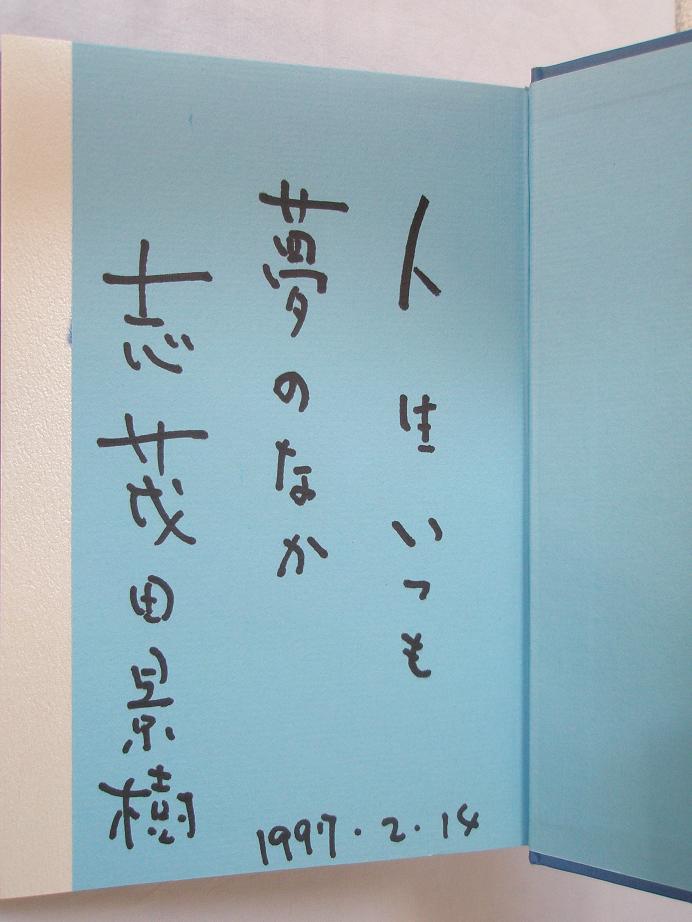 人生いつも
夢のなか
志茂田景樹
1997.2.14